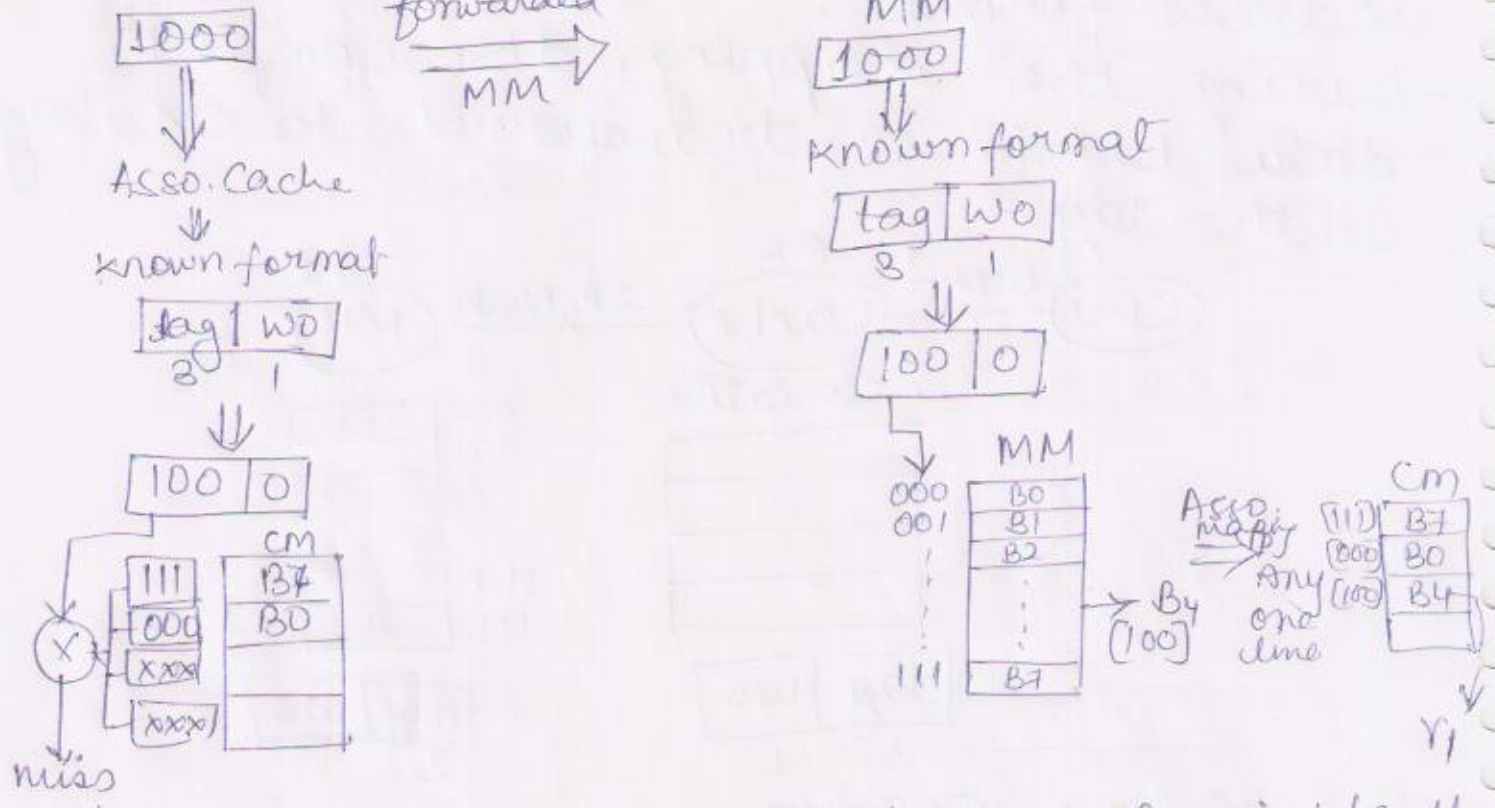 1000
forwarded
MM
Asso. Cache
Known format
tag | WO
3 1
100 | 0
CM
111 B7
000 B0
xxx
xxx
X
miss
MM
1000
Known format
tag | WO
3 1
100 | 0
MM
000 B0
001 B1
B2
111 B7
B4
[100]
Asso.
Any
one
line
CM
[111] B7
[000] B0
[100] B4
r1